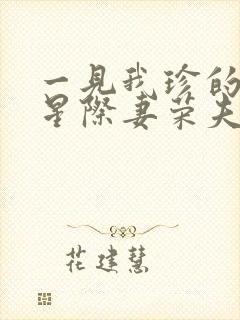 一見我珍的
星際妻荣夫
花建慧